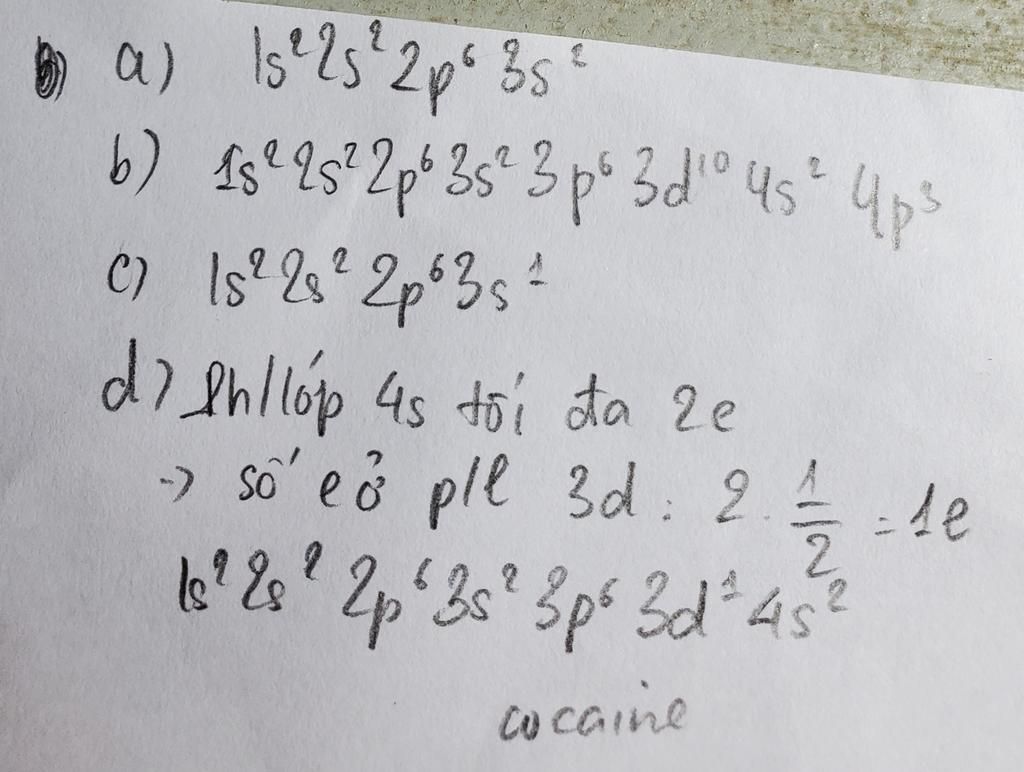 a) 1s² 2s² 2p⁶ 3s²
b) 1s² 2s² 2p⁶ 3s² 3p⁶ 3d¹⁰ 4s² 4p³
c) 1s² 2s² 2p⁶ 3s¹
d) Ph/lớp 4s tối đa 2e
-> số e ở p/l 3d : 2 . 1/2 = 1e
1s² 2s² 2p⁶ 3s² 3p⁶ 3d¹ 4s²
cocaine